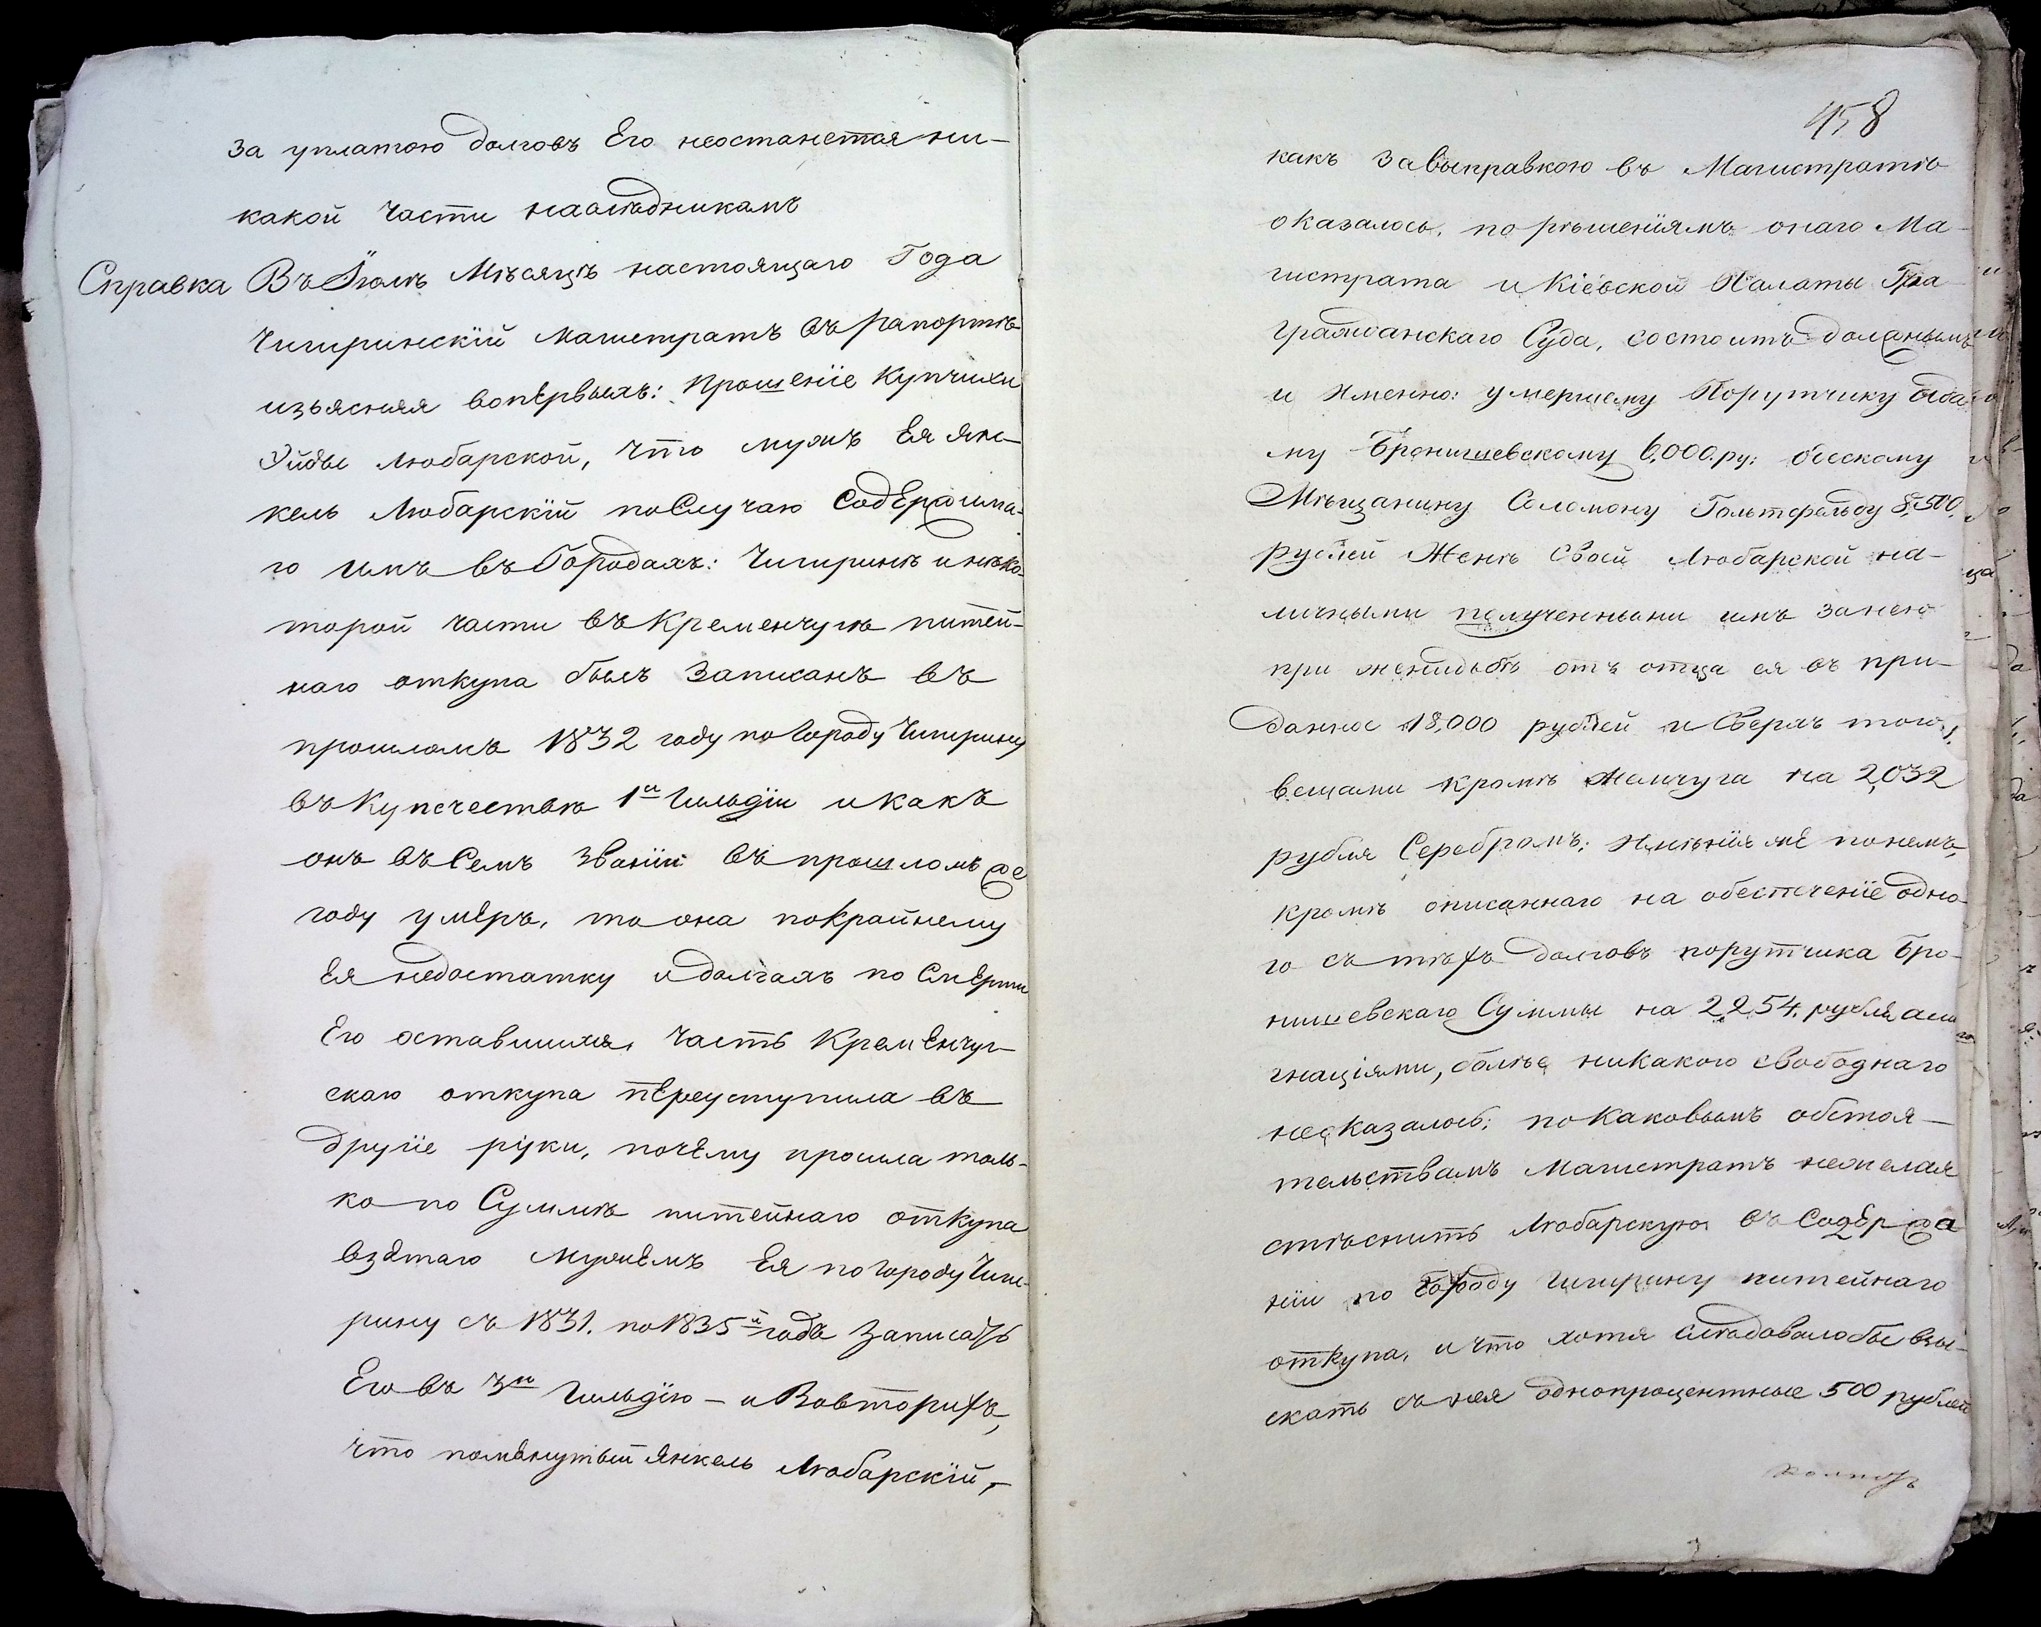 за уплатою долговъ Его неостанется ни-
какой части наслѣдникамъ
Справка Въ Іюлѣ Мѣсяцѣ настоящаго Года
Чигиринскій Магистратъ въ рапортѣ
изъясняя вопервыхъ: прошеніе купчихи
Эйды Любарской, что мужъ Ея Ян-
кель Любарскій по Случаю Содержима-
го имъ въ Городахъ: Чигиринѣ и нѣко-
торой части въ Кременчугѣ питей-
наго откупа былъ записанъ въ
прошломъ 1832 году по городу Чигирину
въ купечество 1й гильдіи и какъ
онъ въ Семъ званіи въ прошломъ же
году умеръ, то она по крайнему
Ея недостатку и долгахъ по Смерти
Его оставшихся, часть Кременчуг-
скаго откупа переуступила въ
другіе руки, почему просила толь-
ко по Суммѣ питейнаго откупа
взятаго мужемъ Ея по городу Чиги-
рину съ 1831. по 1835й годъ записать
Его въ 3ю гильдію — и Вовторыхъ,
что помянутый Янкель Любарскій,
458
какъ за выправкою въ Магистратѣ
оказалось, по рѣшеніямъ онаго Ма-
гистрата и Кіевской Палаты Гра
гражданскаго Суда, состоитъ должнымъ
и Именно: умершему Порутчику Ада-
му Бронишевскому 6,000 ру:
Мѣщанину Соломону Гольтфельду 8,500.
рублей Женѣ Своей Любарской на-
личными полученными имъ за нею
при женидьбѣ отъ отца ея въ при-
данное 18,000 рублей и Сверхъ того
вещами кромѣ Жемчуга на 2,032
рубля Серебромъ; Имѣнія же по немъ,
кромѣ описаннаго на обеспеченіе одно-
го съ тѣхъ долговъ порутчика Бро-
нишевскаго Суммы на 2,254. рубля асси
гнаціями, болѣе никакого свободнаго
неоказалось; по каковымъ обстоя-
тельствамъ Магистратъ нежелая
стѣснить Любарскую въ Содержа
ніи по Городу Чигирину питейнаго
откупа, и что хотя слѣдовало бы взы-
скать съ нея однопроцентные 500 рублей